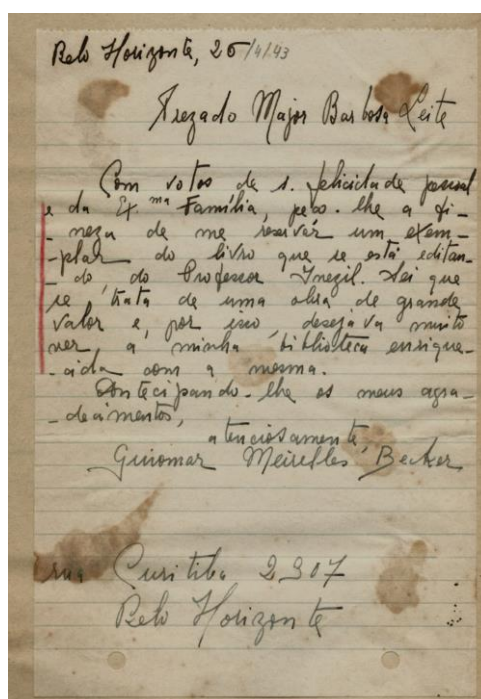 Belo Horizonte, 26/4/43
Prezado Major Barbosa Leite
Com votos de s. felicidade pessoal
e da Ex.ma Família, peço-lhe a fi-
-neza de me reservar um exem-
-plar do livro que se está editan-
-do, do Professor Inezil. Sei que
se trata de uma obra de grande
valor e, por isso, desejava muito
ver a minha biblioteca enrique-
-cida com a mesma.
Antecipando-lhe os meus agra-
-decimentos,
atenciosamente,
Guiomar Meirelles Becker
rua Curitiba 2307
Belo Horizonte